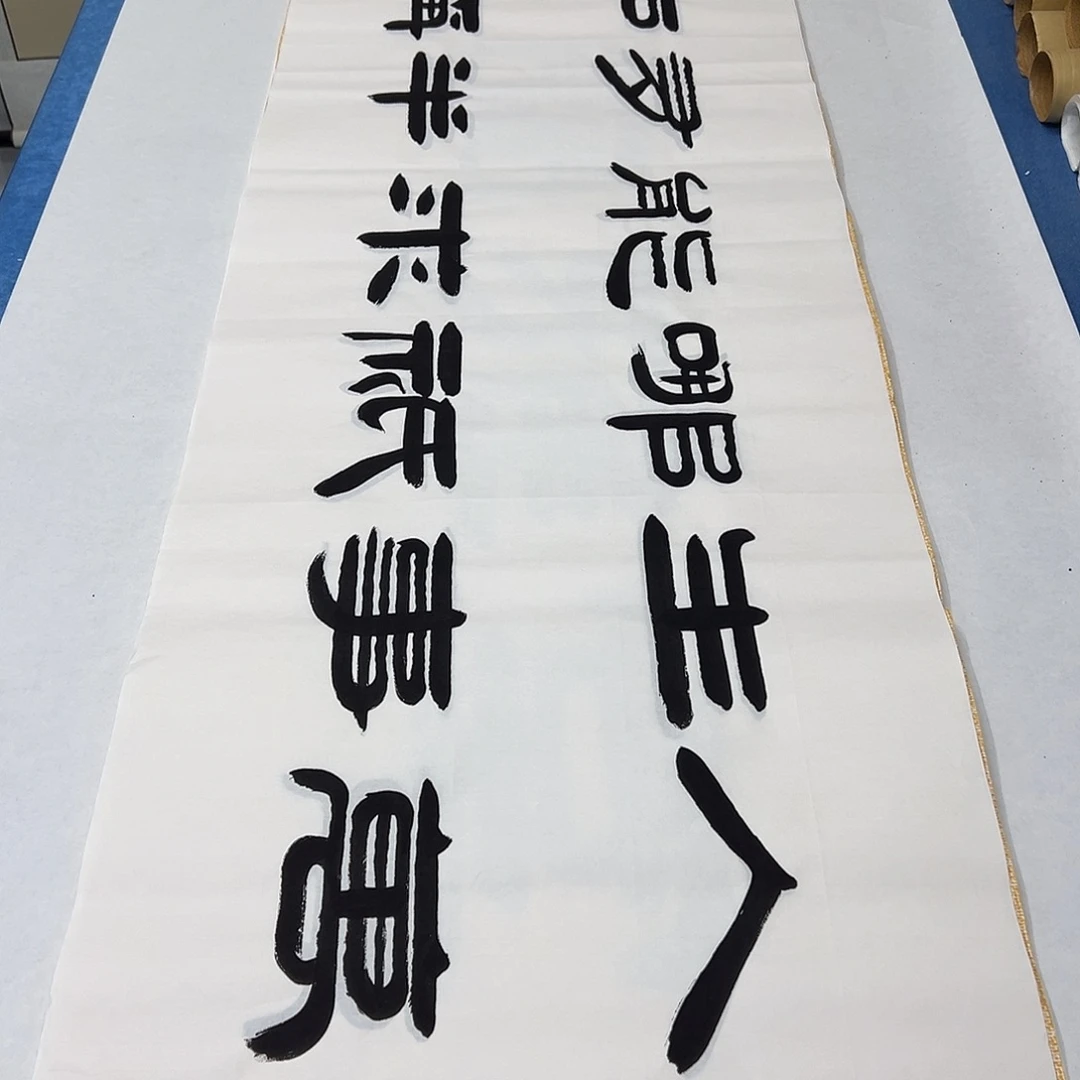 人生哪能多
萬事祇求半